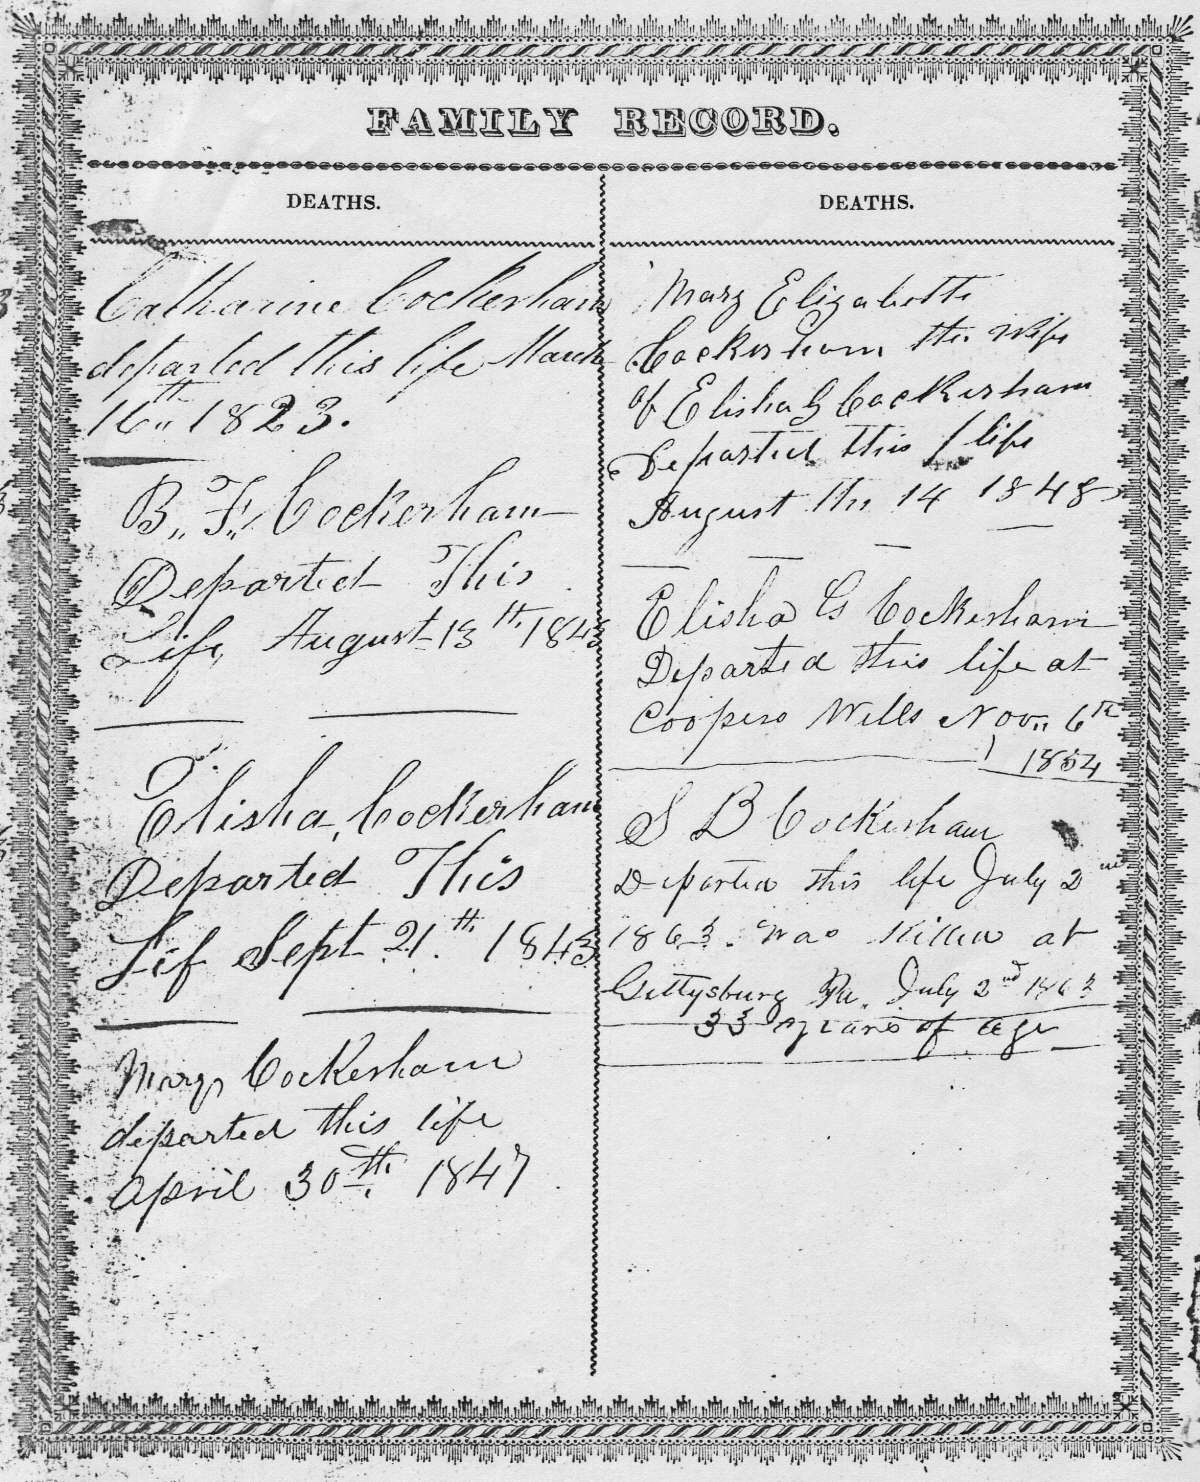 FAMILY RECORD.
DEATHS.
Catharine Cockerham
departed this life March
16th 1823.
B,, F,, Cockerham
Departed This
Life, August 13th 1843
Elisha, Cockerham
Departed This
Lif Sept 21th 1843
Mary Cockerham
departed this life
april 30th. 1847
DEATHS.
Mary Elizabeth
Cockerham the wife
of Elisha G Cockerham
Departed this life
August the 14 1848
Elisha G Cockerham
Departed this life at
Coopers Wells Nov,, 6th
1854
S B Cockerham
Departed this life July 2nd
1863. was killed at
Gettysburg Pa. July 2nd 1863
33 years of age